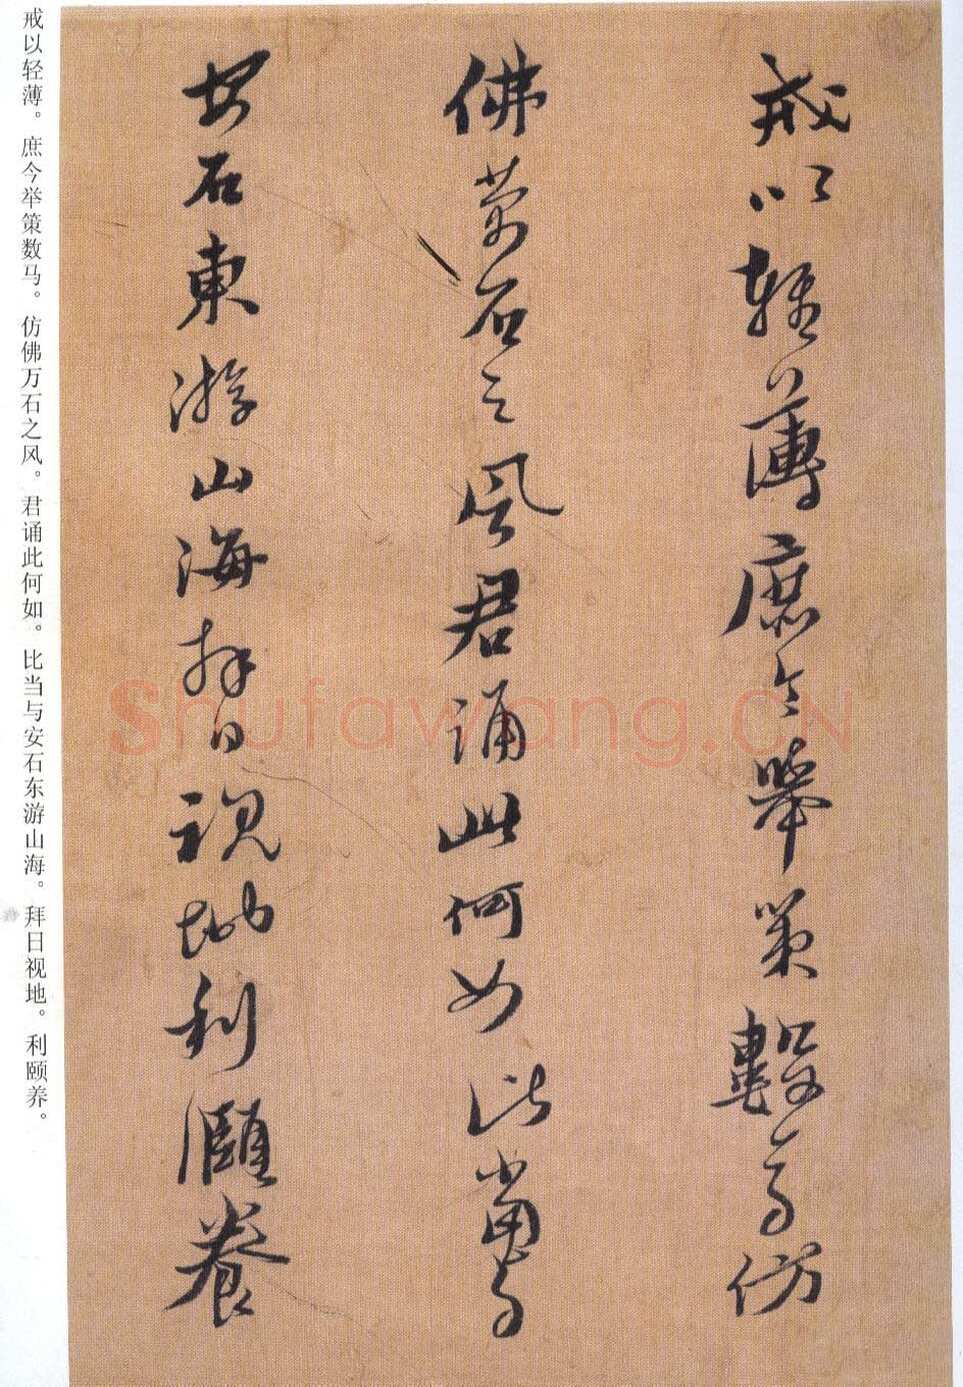 戒以轻薄。庶今举策数马。仿佛万石之风。君诵此何如。比当与安石东游山海。拜日视地。利颐养。
戒以輕薄庶今舉策數馬仿
佛萬石之風君誦此何如比當与
安石東游山海拜日視地利頤養
Shufawang.CN